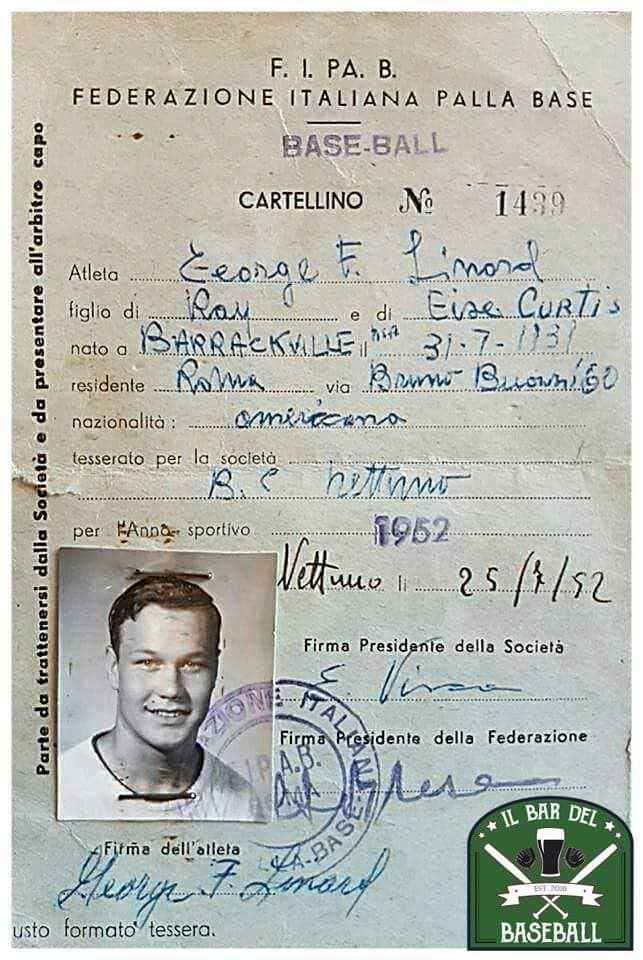 F. I. PA. B.
FEDERAZIONE ITALIANA PALLA BASE
BASE-BALL
CARTELLINO No 1439
Atleta George F. Linard
figlio di Ray e di Eise CURTIS
nato a BARRACKVILLE il 31-7-1931
residente Roma via Bruno Buozzi 60
nazionalità: americana
tesserato per la società
B. C Nettuno
per l'Anno sportivo 1952
Nettuno li 25/7/52
Firma Presidente della Società
Firma Presidente della Federazione
Firma dell'atleta
George F. Linard
usto formato tessera.
Parte da trattenersi dalla Società e da presentare all'arbitro capo
IL BAR DEL
EST. 2018
BASEBALL